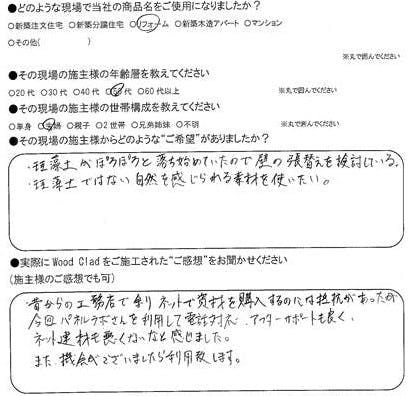 ●どのような現場で当社の商品名をご使用になりましたか?
○新築注文住宅 ○新築分譲住宅 ○リフォーム ○新築木造アパート ○マンション
○その他( )
※丸で囲んでください
●その現場の施主様の年齢層を教えてください
○20代 ○30代 ○40代 ○50代 ○60代以上 ※丸で囲んでください
●その現場の施主様の世帯構成を教えてください
○単身 ○夫婦 ○親子 ○2世帯 ○兄弟姉妹 ○不明 ※丸で囲んでください
●その現場の施主様からどのような"ご希望"がありましたか?
・珪藻土がぽろぽろと落ち始めていたので壁の張替えを検討している。
・珪藻土ではない自然を感じられる素材を使いたい。
●実際にWood Cladをご施工された"ご感想"をお聞かせください
(施主様のご感想でも可)
昔からの工務店で余りネットで資材を購入するのには抵抗があったが
今回パネルラボさんを利用して電話対応、アフターサポートも良く、
ネット建材も悪くないなと感じました。
また、機会がございましたら利用致します。